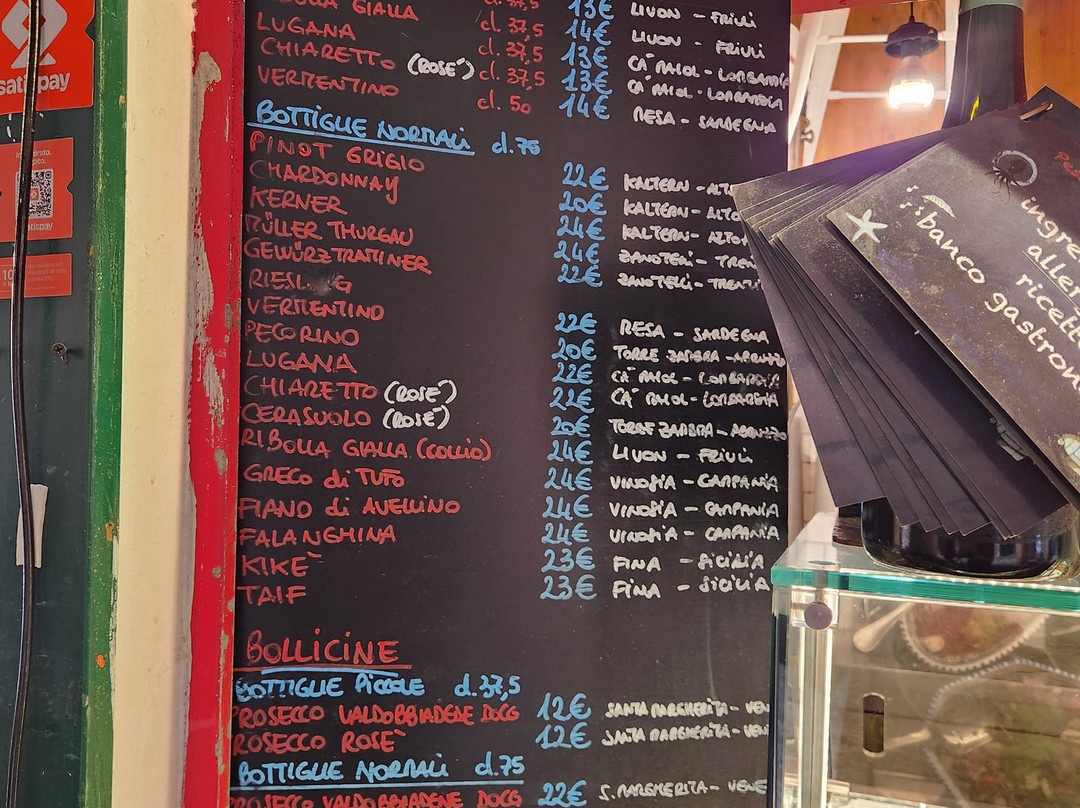 cl. 37,5 13€ LIVON - FRIULI
GIALLA cl. 37,5 14€ LIVON - FRIULI
LUGANA cl. 37,5 13€ CA' MAIOL - LOMBARDIA
CHIARETTO (ROSE') cl. 37,5 13€ CA' MAIOL - LOMBARDIA
VERMENTINO cl. 50 14€ RESA - SARDEGNA
BOTTIGLIE NORMALI cl. 75
PINOT GRIGIO 22€ KALTERN - ALT
CHARDONNAY 20€ KALTERN - ALTO
KERNER 24€ KALTERN - ALTO
MÜLLER THURGAU 24€ ZANOTELLI - TREN
GEWÜRZTRAMINER 22€ ZANOTELLI - TRENT
RIESL G
VERMENTINO 22€ RESA - SARDEGNA
PECORINO 20€ TORRE ZAMBRA - ABRUZZO
LUGANA 22€ CA' MAIOL - LOMBARDIA
CHIARETTO (ROSE') 22€ CA' MAIOL - LOMBARDIA
CERASUOLO (ROSE') 20€ TORRE ZAMBRA - ABRUZZO
RIBOLLA GIALLA (COLLIO) 24€ LIVON - FRIULI
GRECO di TUFO 24€ VINOSIA - CAMPANIA
FIANO di AVELLINO 24€ VINOSIA - CAMPANIA
FALANGHINA 24€ VINOSIA - CAMPANIA
KIKE' 23€ FINA - SICILIA
TAIF 23€ FINA - SICILIA
BOLLICINE
BOTTIGLIE PICCOLE cl. 37,5
PROSECCO VALDOBBIADENE DOCG 12€ SANTA MARGHERITA - VEN
ROSECCO ROSE' 12€ SANTA MARGHERITA - VEN
BOTTIGLIE NORMALI cl. 75
PROSECCO VALDOBBIADENE DOCG 22€ S. MARGHERITA - VENE
satispay
atispay
ingre
aller
ricett
banco gastron